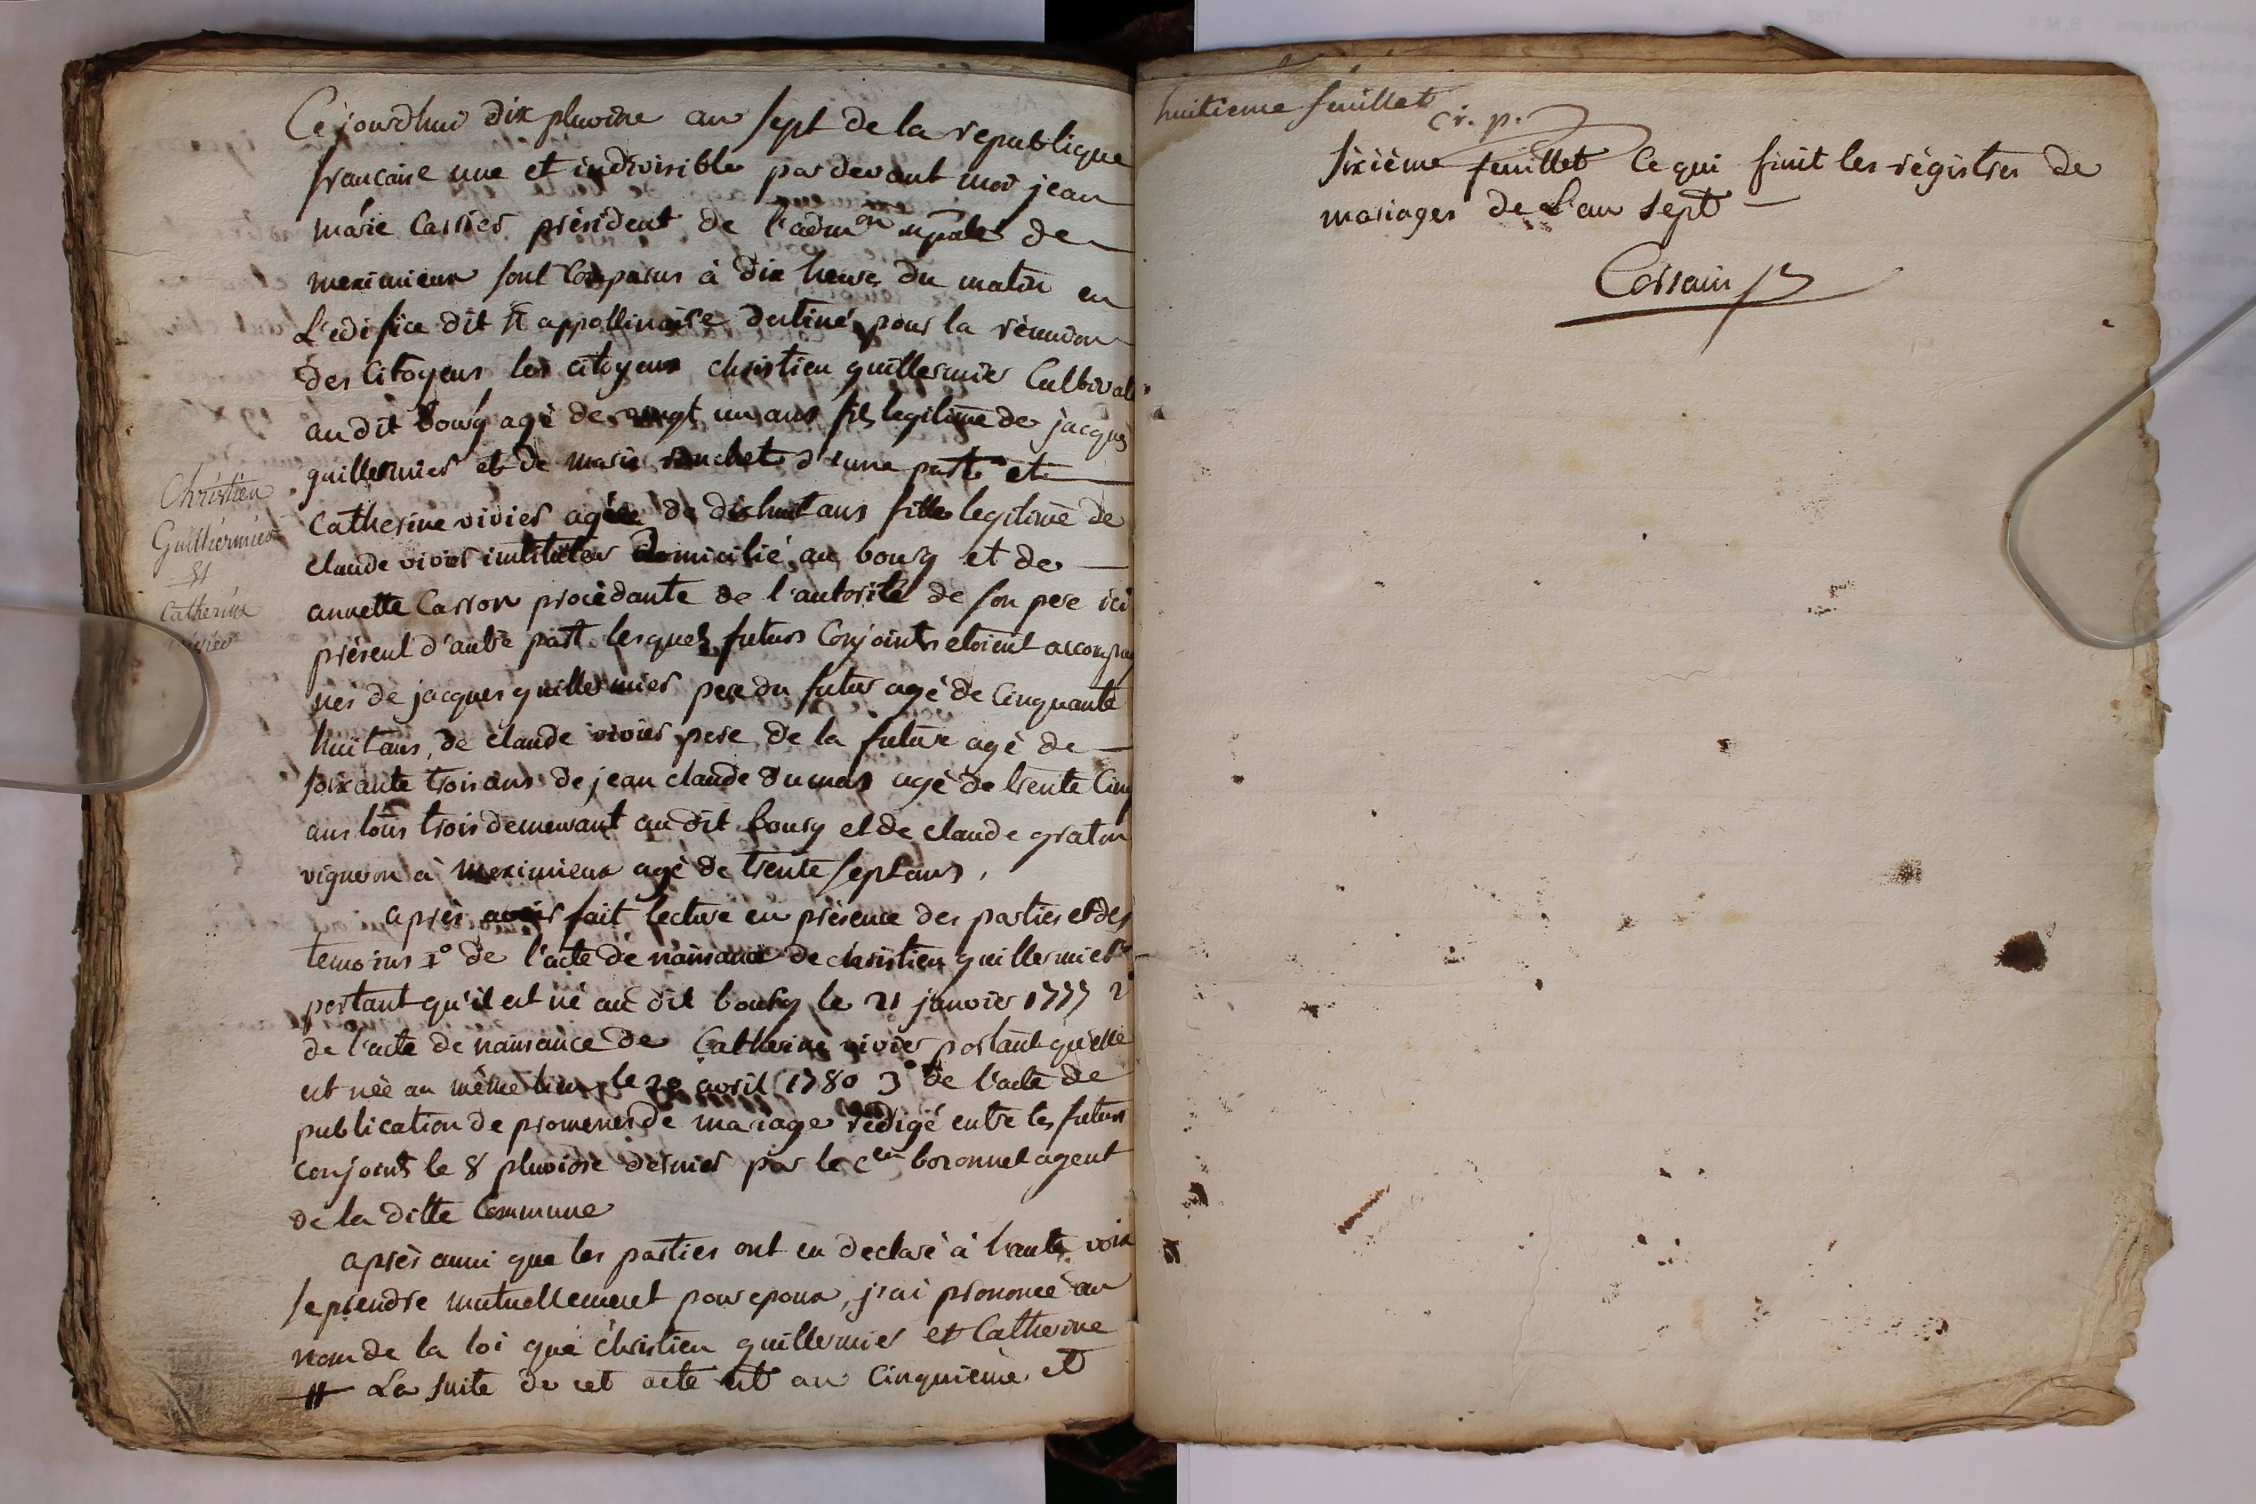 Cejourdhui dix pluviose an sept de la republique
francaise une et indivisible par devant moi jean
marie Carrier président de l'admon mpale de
meximieux sont comparus à dix heures du matin en
L'edifice dit St appollinaire destiné pour la réunion
des Citoyens les citoyens christien guillermier Cultivat
au dit bourg agé de vingt un ans fils legitime de jacques
guillermier et de marie d'une part et
Catherine vivier agée de dix huit ans fille legitime de
claude vivier instituteur domicilié au bourg et de
annette Carron procèdante de l'autorité de son pere ici
présent d'autre part lesquels futurs Conjoints etoient accompag
nés de jacques guillermier pere du futur agé de Cinquante
huit ans, de claude vivier pere de la future agé de
soixante trois ans de jean claude dumas agé de trente Cinq
ans tous trois demeurant au dit bourg et de claude graton
vigneron à meximieux agé de trente sept ans,
après avoir fait lecture en présence des parties et des
temoins 1° de l'acte de naissance de christien guillermier
portant qu'il est né au dit bourg le 21 janvier 1777 2°
de l'acte de naissance de Catherine vivier portant qu'elle
est née au même lieu le 20 avril 1780 3° de l'acte de
publication de promesses de mariage rédigé entre les futurs
conjoints le 8 pluviose dernier par le Cen boronnet agent
de la ditte Commune
après aussi que les parties ont eu declaré à haute voix
se prendre mutuellement pour epoux, j'ai prononcé au
nom de la loi que christien guillermier et Catherine
# La suite de cet acte est au Cinquième et
Christien
Guillermier
et
Catherine
vivier
huitieme feuillet
cr. p.
sixième feuillet Ce qui finit les régistres de
mariages de l'an sept